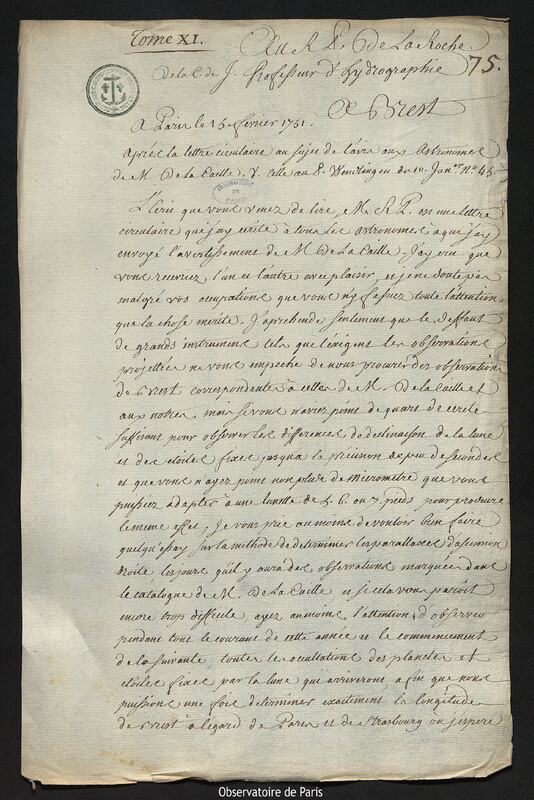 Tome XI.
Au R. P. De La Roche
75.
De la C. de J. Professeur d'hydrographie
A Brest
A Paris le 15 fevrier 1751.
Après la lettre circulaire au sujet de l'avis aux Astronomes
de M. De la Caille. V. celle au P. Wendlingen du 10. Janer. No. 45
OBSERVATOIRE
DE
PARIS
L'Ecrit que vous venez de lire, M. R. P. est une lettre
circulaire que j'ay ecrite à tous les astronomes a qui j'ay
envoyé l'avertissement de M. De la Caille. J'ay cru que
vous recevriez l'un et l'autre avec plaisir et je ne doute pas
malgré vos occupations que vous n'y fassiez toute l'attention
que la chose merite. J'aprehende seulement que le deffaut
de grands instrumens tels que l'exigent les observations
projettées ne vous empeche de nous procurer des observations
de Brest correspondantes à celles de M. De la Caille et
aux notres. mais si vous n'avez point de quart de cercle
suffisant pour observer les differences de declinaison de la lune
et des étoiles fixes jusqu'a la précision de peu de secondes
et que vous n'ayez point non plus de micrometre que vous
puissiez adapter à une lunette de 5. 6. ou 7. pieds pour procurer
le meme effet, Je vous prie au moins de vouloir bien faire
quelqu'essay sur la methode de determiner les parallaxes d'ascension
droite, les jours qu'il y aura des observations marquées dans
le catalogue de M. De la Caille et si cela vous paroist
encore trop difficile, ayez au moins l'attention d'observer
pendant tout le courant de cette année et le commencement
de la suivante, toutes les occultations des planetes et
etoiles fixes par la lune qui arriveront afin que nous
puissions une fois determiner exactement la longitude
de Brest a l'egard de Paris et de Strasbourg ou j'espere
Observatoire de Paris